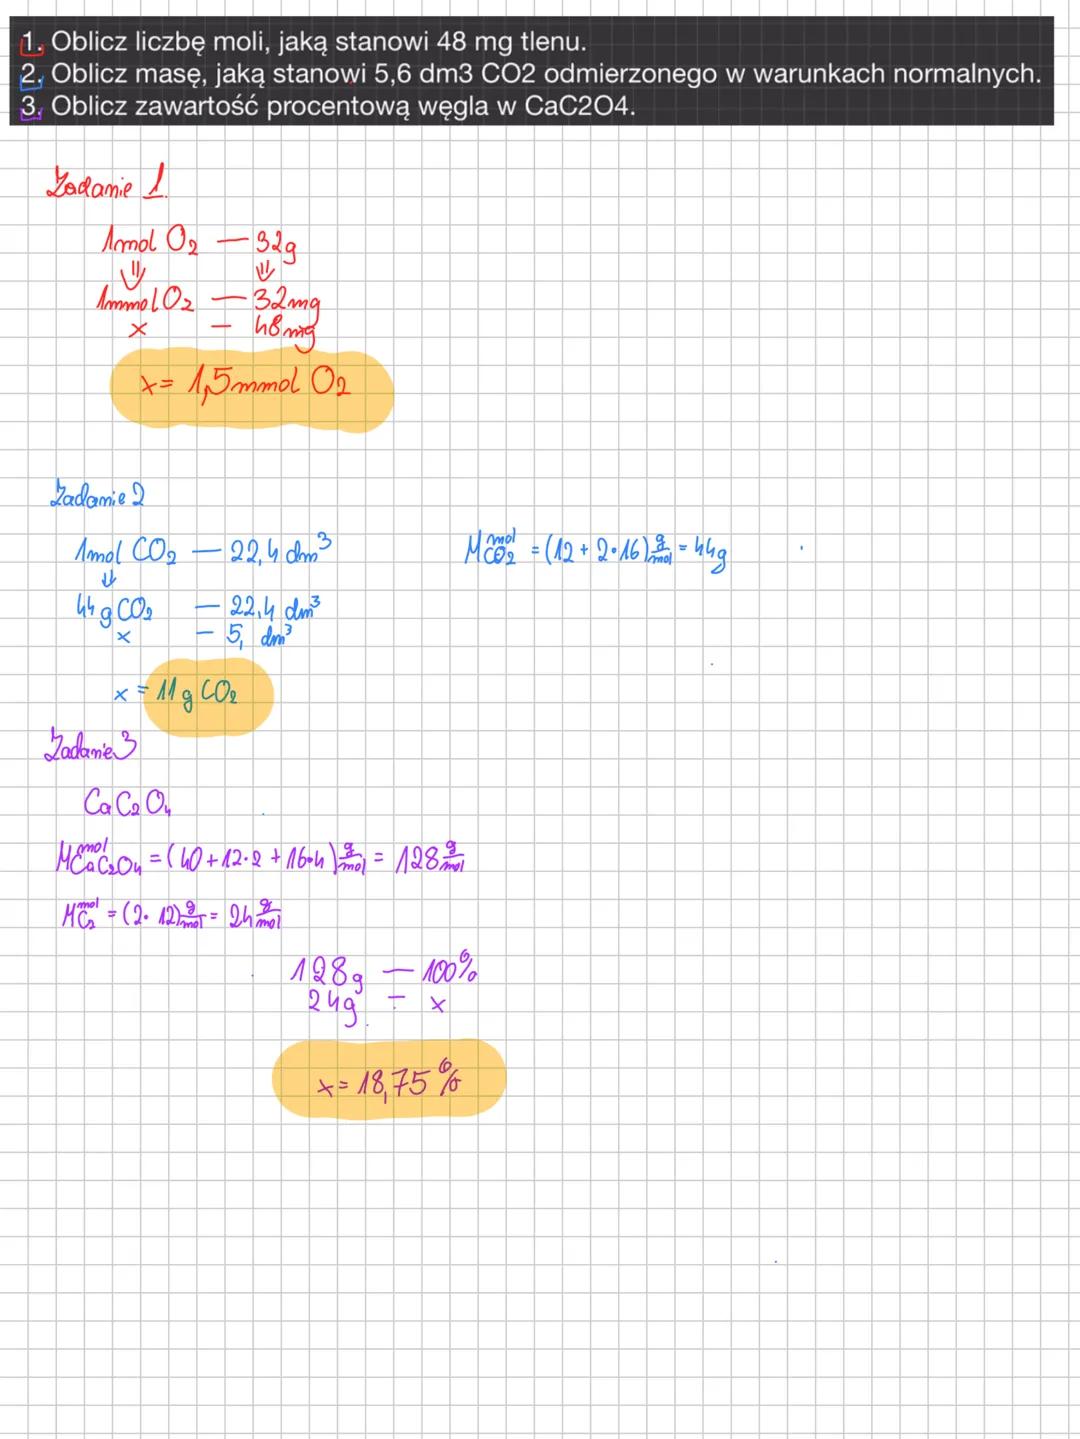 1. Oblicz liczbę moli, jaką stanowi 48 mg tlenu.
2. Oblicz masę, jaką stanowi 5,6 dm3 CO2 odmierzonego w warunkach normalnych.
3. Oblicz zawartość procentową węgla w CaC2O4.
Zadanie 1.
1mol O₂ — 32g
⇓ ⇓
1mmol O₂ — 32mg
x — 48mg
x = 1,5mmol O₂
Zadanie 2
1mol CO₂ — 22,4 dm³ M mol CO₂ = (12 + 2·16) g/mol = 44g
⇓
44g CO₂ — 22,4 dm³
x — 5, dm³
x = 11g CO₂
Zadanie 3
CaC₂O₄
M mol CaC₂O₄ = (40 + 12·2 + 16·4) g/mol = 128 g/mol
M mol C₂ = (2·12) g/mol = 24 g/mol
128g — 100%
24g — x
x = 18,75%